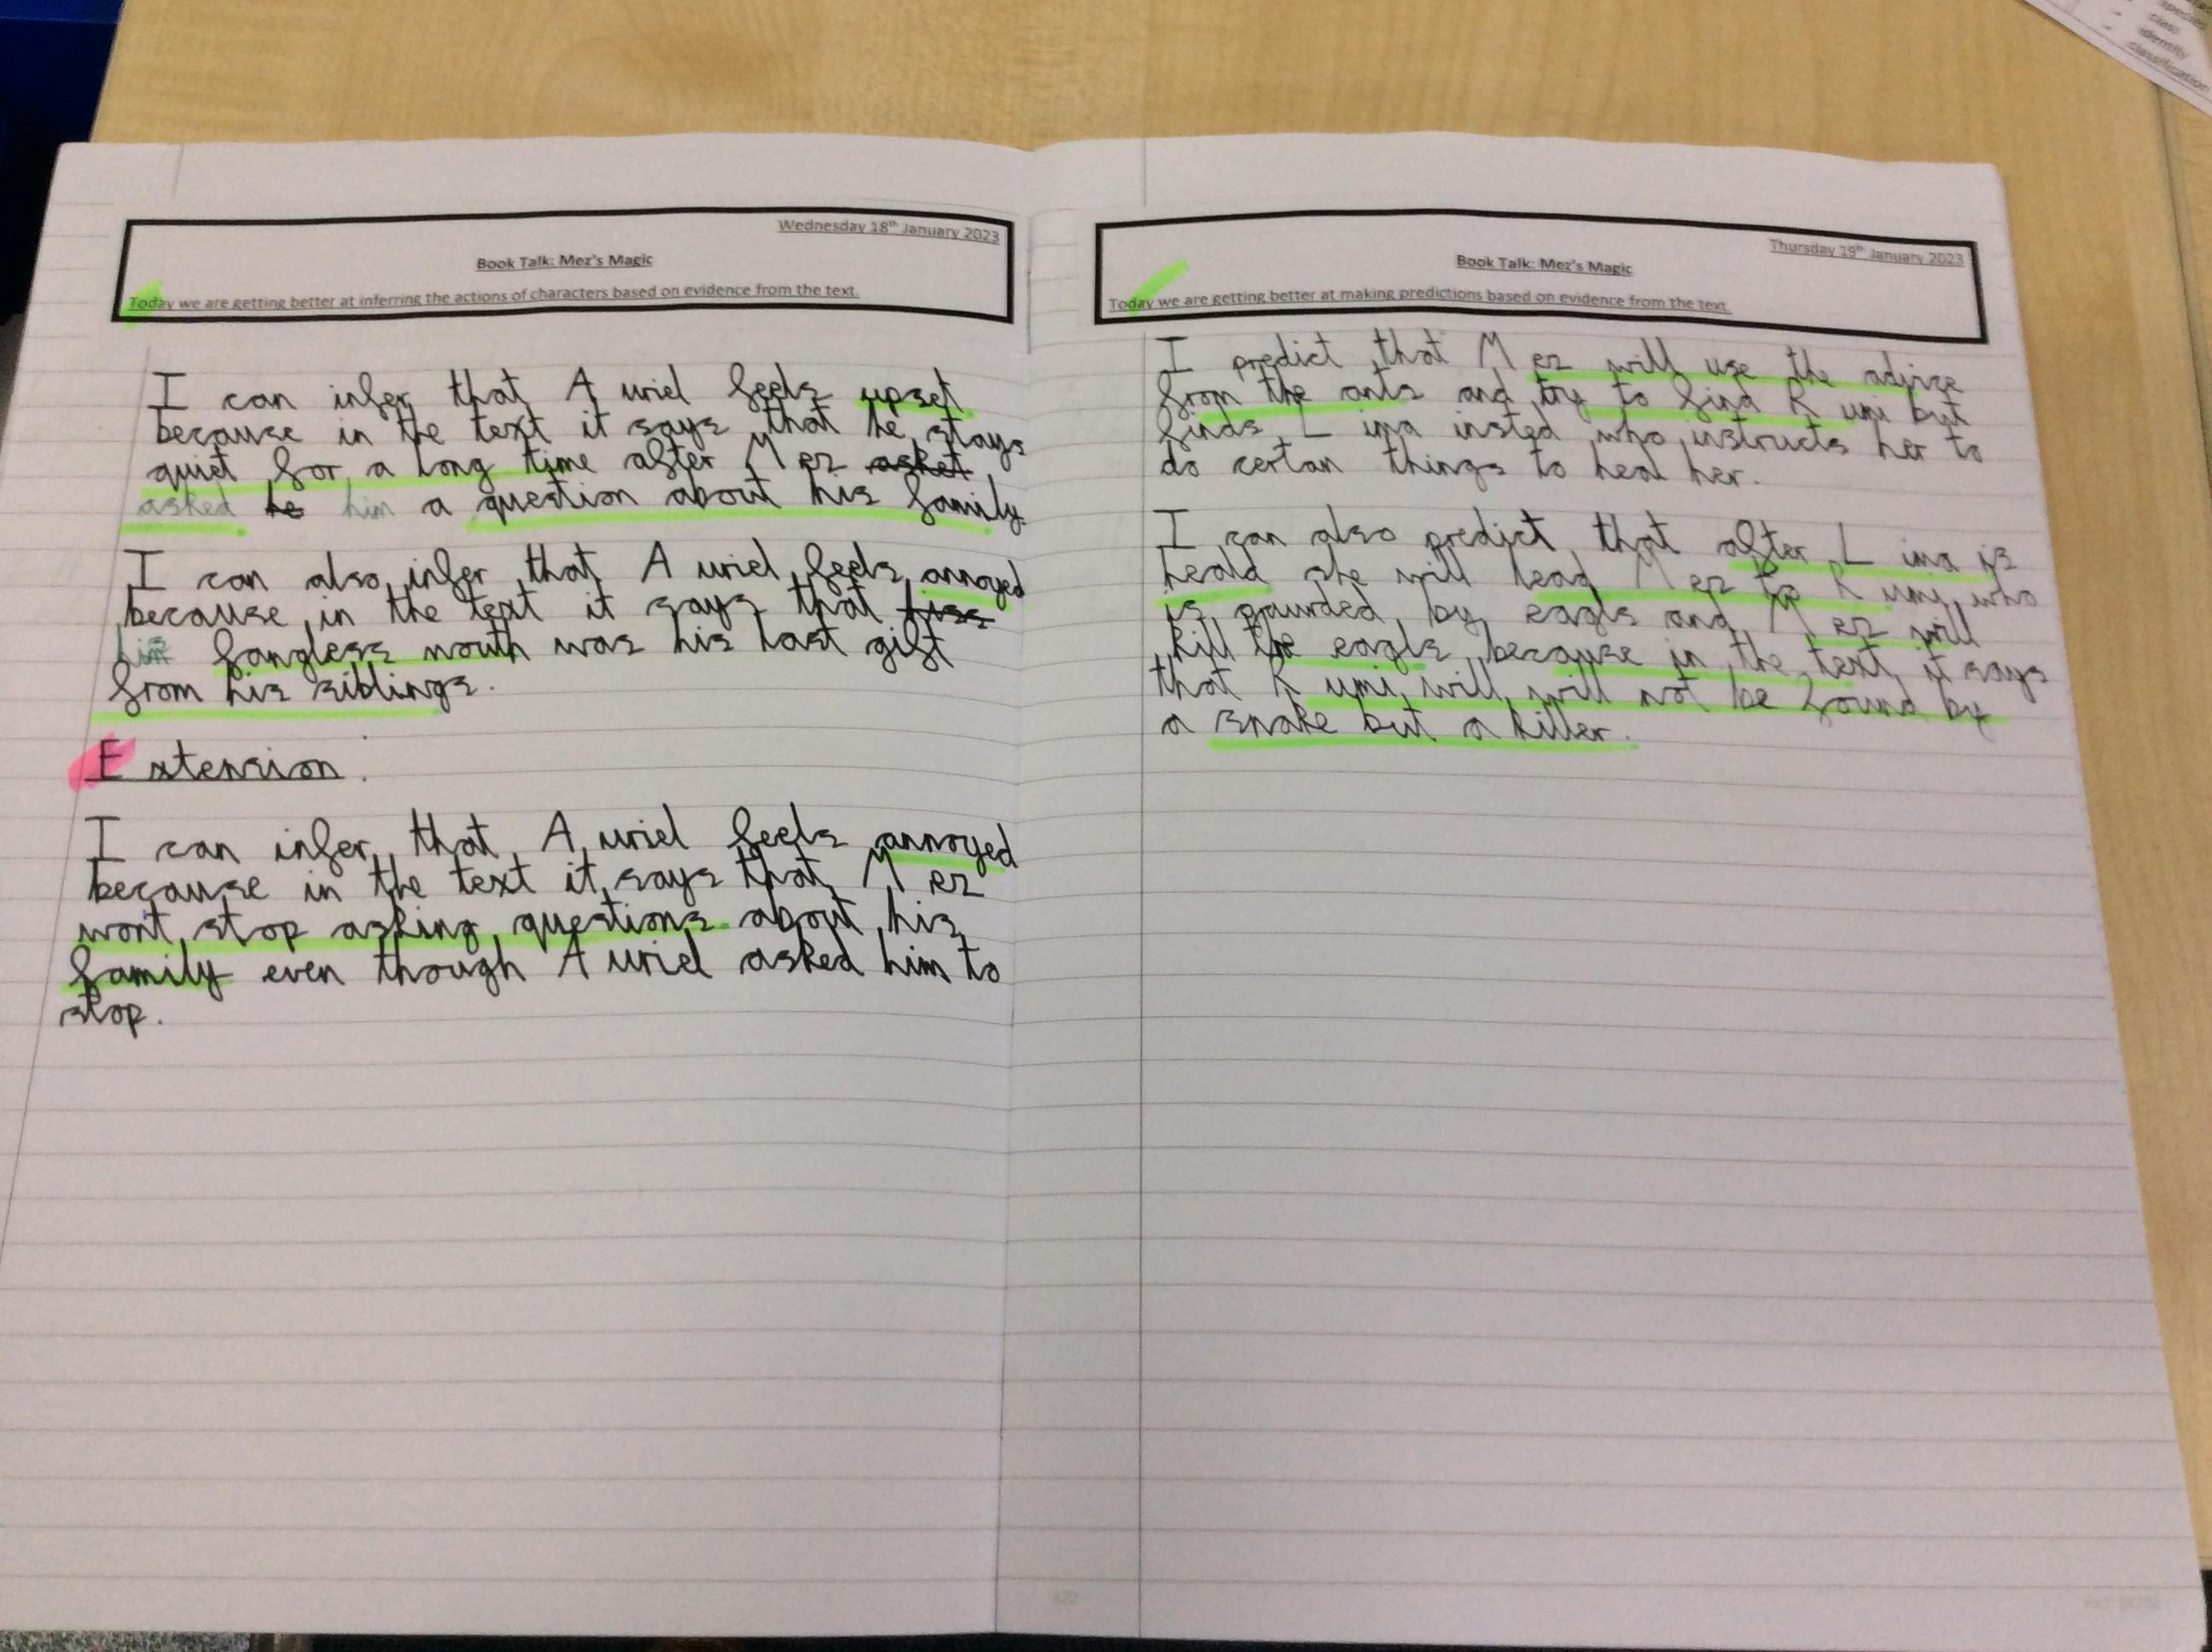 Wednesday 18th January 2023
Book Talk: Mez's Magic
Today we are getting better at inferring the actions of characters based on evidence from the text.
I can infer that Auriel feels upset
because in the text it says that he stays
quiet for a long time after Mez asket
asked he him a question about his family.
I can also infer that Auriel feels annoyed
because in the text it says that
his fangless mouth was his last gift
from his siblings.
Extension:
I can infer that Auriel feels annoyed
because in the text it says that Mez
wont stop asking questions about his
family even though Auriel asked him to
stop.
Thursday 19th January 2023
Book Talk: Mez's Magic
Today we are getting better at making predictions based on evidence from the text.
I predict that Mez will use the advice
from the ants and try to find Rumi but
finds Lima insted who instructs her to
do certan things to heal her.
I can also predict that after Lima is
heald she will lead Mez to Rumi who
is gaurded by eagls and Mez will
kill the eagls because in the text it says
that Rumi will will not be found by
a snake but a killer.
species
class
identify
classification